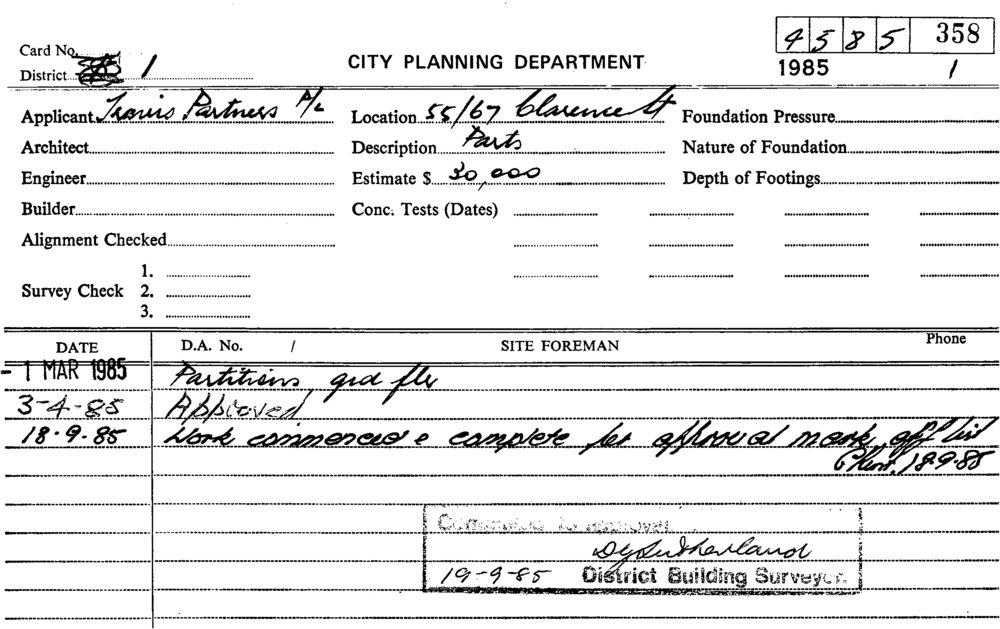 4585 358
Card No.
CITY PLANNING DEPARTMENT
1985 1
District 1
Applicant Travis Partners P/L Location 55/67 Clarence St Foundation Pressure
Architect Description Parts Nature of Foundation
Engineer Estimate $ 30,000 Depth of Footings
Builder Conc. Tests (Dates)
Alignment Checked
1.
Survey Check 2.
3.
DATE D.A. No. / SITE FOREMAN Phone
- 1 MAR 1985 Partitions, grd flr
3-4-85 Approved
18.9.85 Work commenced & complete for approval mark off list
18.9.85
Completed to approval
DJ Sutherland
19-9-85 District Building Surveyor.